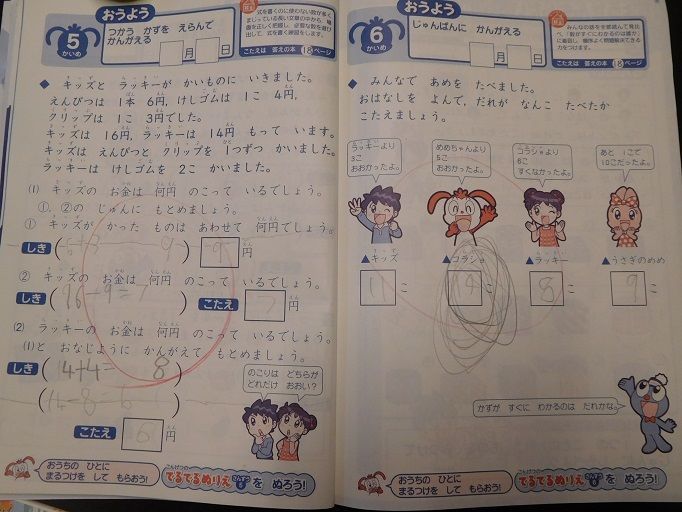 おうよう
5
かいめ
つかう かずを えらんで
かんがえる
月 日
式を書くのに使わない数が多く
まじっている長い文章の中から、場
面を正しく把握し、必要な数を選び
出して、式を書く練習をします。
こたえは 答えの本 18ページ
キッズと ラッキーが かいものに いきました。
えんぴつは 1本 6円, けしゴムは 1こ 4円,
クリップは 1こ 3円でした。
キッズは 16円, ラッキーは 14円 もって います。
キッズは えんぴつと クリップを 1つずつ かいました。
ラッキーは けしゴムを 2こ かいました。
(1) キッズの お金は 何円 のこって いるでしょう。
①, ②の じゅんに もとめましょう。
① キッズが かった ものは あわせて 何円でしょう。
しき ( 6+3 9 ) 9 円
② キッズの お金は 何円 のこって いるでしょう。
しき ( 16-9=7 ) こたえ 7 円
(2) ラッキーの お金は 何円 のこって いるでしょう。
(1)と おなじように かんがえて もとめましょう。
しき ( 4+4= 8 )
( 14-8=6 )
こたえ 6 円
のこりは どちらが
どれだけ おおい?
おうちの ひとに
まるつけを して もらおう!
こんげつの
てるてるぬりえ 5 を ぬろう!
おうよう
6
かいめ
じゅんばんに かんがえる
月 日
みんなの話を全部読んで見比
べ、「数がすぐにわかるのは誰か」
に着目し、順序よく問題解決できる
力をつけます。
こたえは 答えの本 18ページ
みんなで あめを たべました。
おはなしを よんで, だれが なんこ たべたか
こたえましょう。
ラッキーより
3こ
おおかったよ。
めめちゃんより
5こ
おおかったよ。
コラショより
6こ
すくなかったよ。
あと 1こで
10こだったよ。
▲キッズ
▲コラショ
▲ラッキー
▲うさぎのめめ
11 こ
14 こ
8 こ
9 こ
かずが すぐに わかるのは だれかな。
おうちの ひとに
まるつけを して もらおう!
こんげつの
てるてるぬりえ 6 を ぬろう!